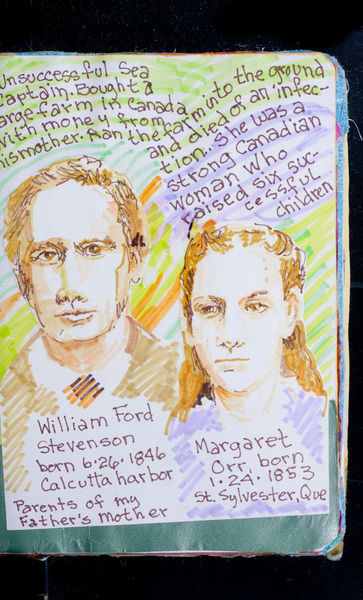 Unsuccessful Sea
Captain. Bought a
large farm in Canada
with money from
his mother. Ran the farm into the ground
and died of an infec-
tion. She was a
strong Canadian
woman who
raised six suc-
cessful
children
William Ford
Stevenson
born 6.26.1846
Calcutta harbor
Parents of my
Father's Mother
Margaret
Orr, born
1.24.1853
St. Sylvester, Que